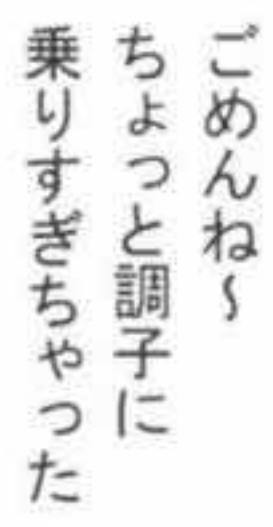 ごめんね～
ちょっと調子に
乗りすぎちゃった